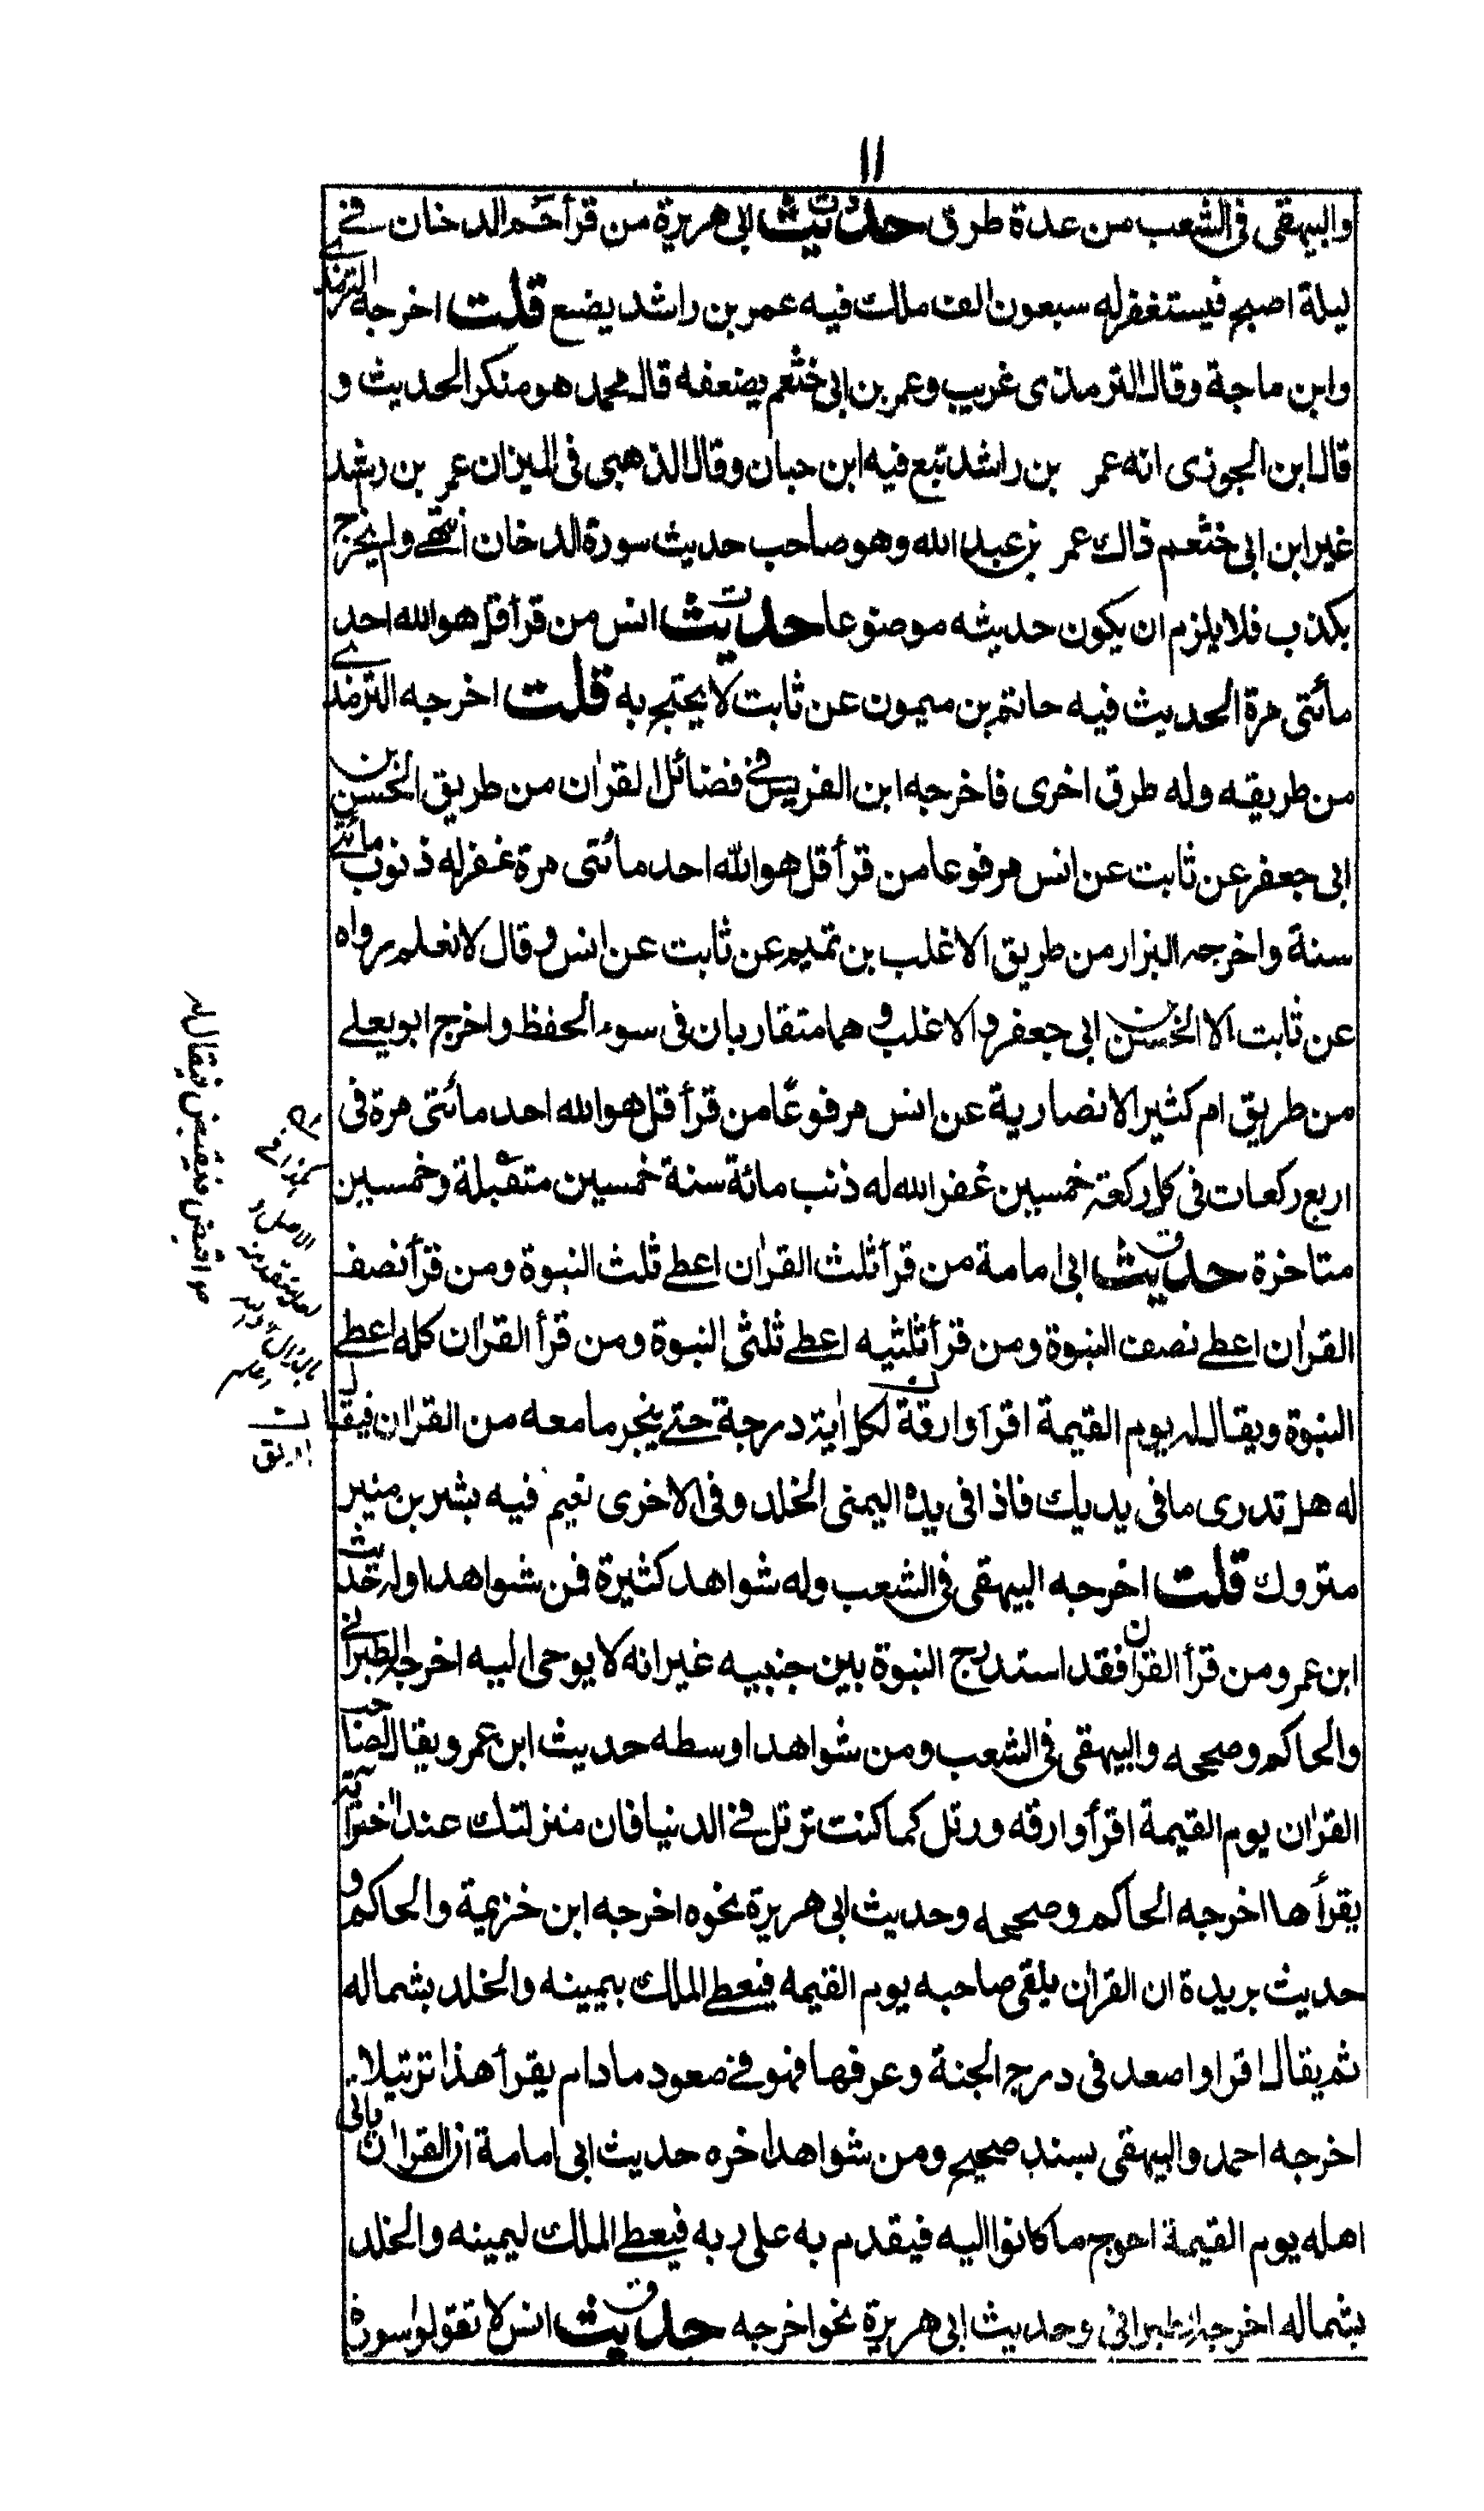 ١١
والبيهقى فى الشعب من عدة طرق حديث ابى هريرة من قرأ حٰم الدخان فے
ليلة اصبح فيستغفرله سبعون الف ملك فيه عمر بن راشد يضع قلت اخرجه الترمذى
وابن ماجة وقال الترمذى غريب وعمر بن ابى خثعم يضعفه قال محمد هو منكر الحديث و
قال ابن الجوزى انه عمر بن راشد تبع فيه ابن حبان وقال الذهبى فى الميزان عمر بن رشد
غير ابن ابى خثعم ذاك عمر بن عبد الله وهو صاحب حديث سورة الدخان انتهے ولم يخرج
بكذب فلا يلزم ان يكون حديثه موضوعا حديث انس من قرأ قل هو الله احد
مأتتى مرة الحديث فيه حاتم بن ميمون عن ثابت لا يحتج به قلت اخرجه الترمذى
من طريقه وله طرق اخرى فاخرجه ابن الفريس فے فضائل القرٰان من طريق الحسن بن
ابى جعفر عن ثابت عن انس مرفوعا من قرأ قل هو الله احد مائتى مرة غفرله ذنوب مائتے
سنة واخرجه البزار من طريق الاغلب بن تميم عن ثابت عن انس وقال لا نعلم رواه
عن ثابت الا الحسن بن ابى جعفر والاغلب وهما متقاربان فى سوء الحفظ واخرج ابو يعلے
من طريق ام كثير الانصارية عن انس مرفوعًا من قرأ قل هو الله احد مائتى مرة فى
اربع ركعات فى كل ركعة خمسين غفر الله له ذنب مائة سنة خمسين متقبلة وخمسين
متاخرة حديث ابى امامة من قرأ ثلث القرٰان اعطے ثلث النبوة ومن قرأ نصف
القرٰان اعطے نصف النبوة ومن قرأ ثلثيه اعطے ثلثى النبوة ومن قرأ القرٰان كله اعطے
النبوة ويقال له يوم القيمة اقرأ وارقة لكل اٰية درجة حتے ينجر ما معه من القرٰان فيقال
له هل تدرى ما فى يديك فاذا فى يده اليمنى الخلد وفى الاخرى نعيم فيه بشر بن منير
متروك قلت اخرجه البيهقى فى الشعب وله شواهد كثيرة فمن شواهد اوله حديث
ابن عمر ومن قرأ القرٰان فقد استدرج النبوة بين جنبيه غير انه لا يوحى اليه اخرجه الطبرانے
والحاكم وصححه والبيهقى فى الشعب ومن شواهد اوسطه حديث ابن عمر ويقال لصاحب
القرٰان يوم القيمة اقرأ وارقه ورتل كما كنت ترتل فے الدنيا فان منزلتك عند اٰخر اٰية
يقرأها اخرجه الحاكم وصححه وحديث ابى هريرة نحوه اخرجه ابن خزيمة والحاكم و
حديث بريدة ان القرٰان يلقى صاحبه يوم القيمه فيعطے الملك بيمينه والخلد بشماله
ثم يقال اقرا واصعد فى درج الجنة وعرفها فهو فے صعود ما دام يقرأ هذا ترتيلا
اخرجه احمد والبيهقى بسند صحيح ومن شواهد اخره حديث ابى امامة ان القرٰان ياتى
اهله يوم القيمة احوج ما كانوا اليه فيقدم به على ربه فيعطے الملك ليمينه والخلد
بشماله اخرجه الطبرانى وحديث ابى هريرة نحو اخرجه حديث انس لا تقولوا سورة
اقبض فيقبض فيقال له